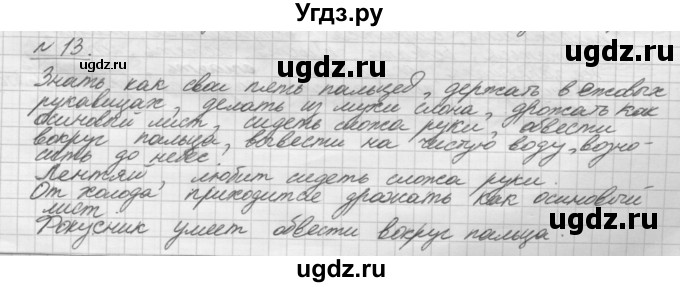 Угдз.ру
№ 13.
Знать как свои пять пальцев, держать в ежовых
рукавицах, делать из мухи слона, дрожать как
осиновый лист, сидеть сложа руки, обвести
вокруг пальца, вывести на чистую воду, возно-
сить до небес.
Лентяй любит сидеть сложа руки.
От холода приходится дрожать как осиновый
лист.
Фокусник умеет обвести вокруг пальца.
ugdz.ru ugdz.ru ugdz.ru
ugdz.ru ugdz.ru
ugdz.ru ugdz.ru ugdz.ru